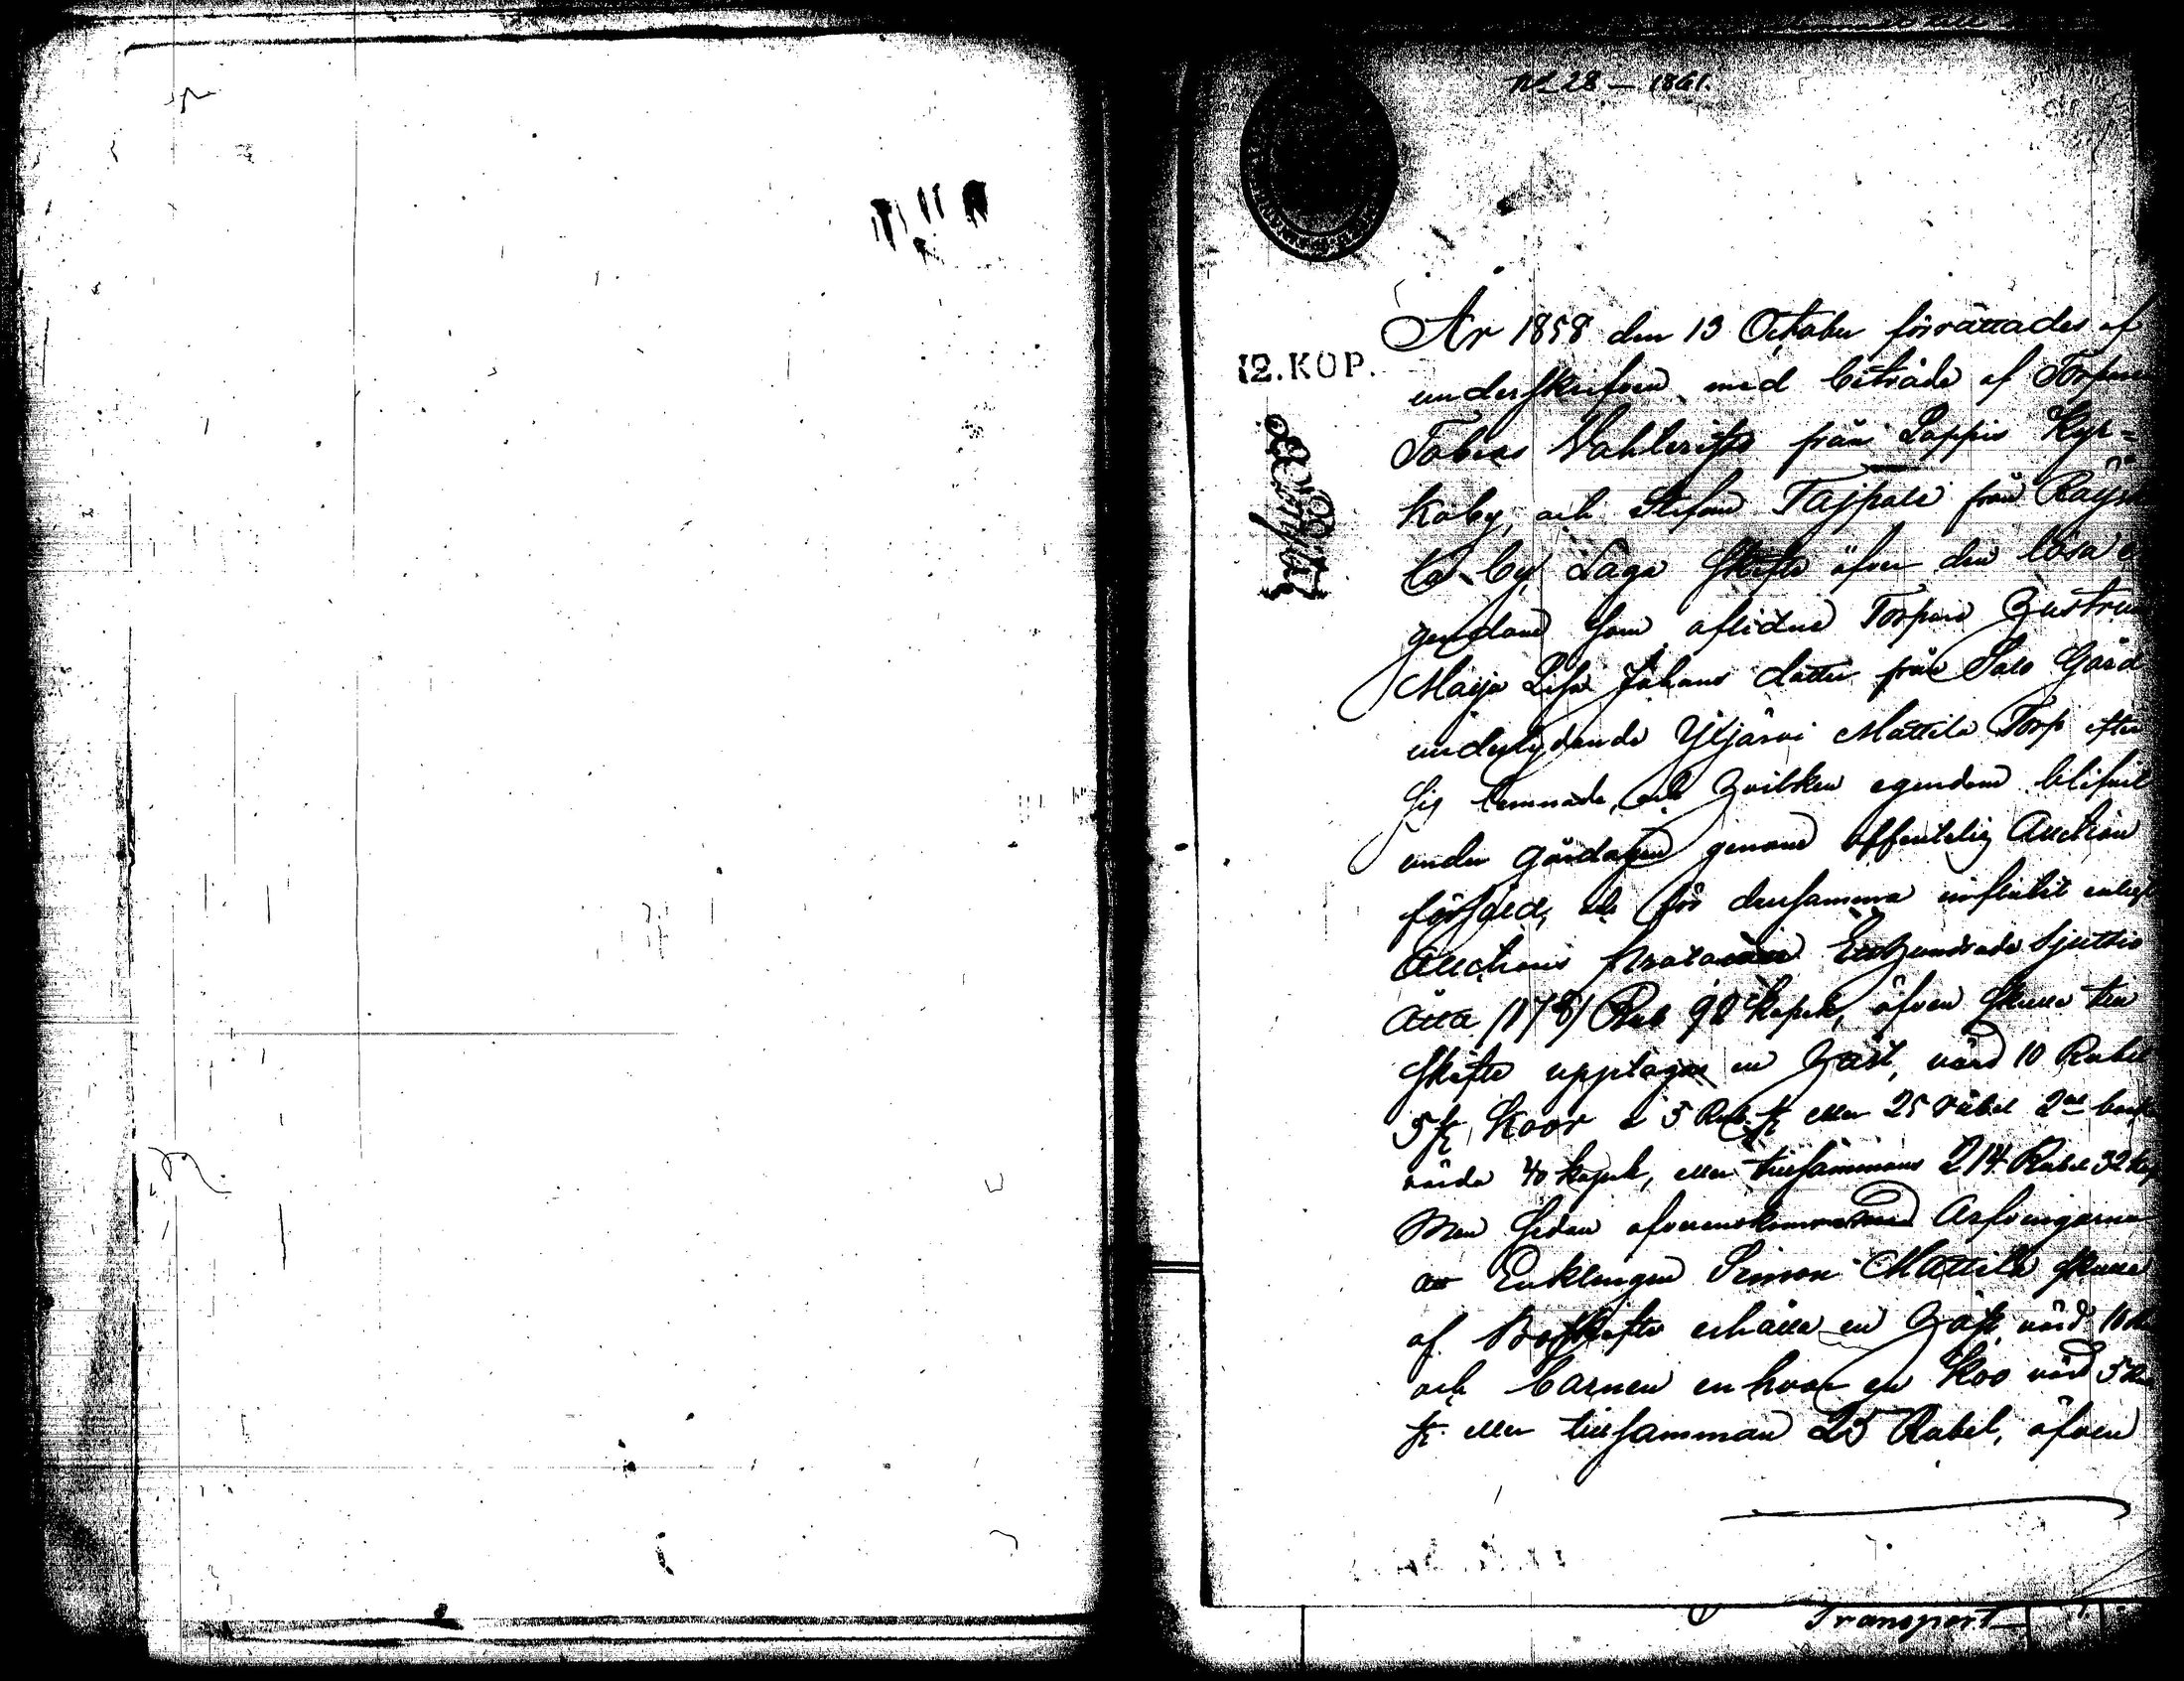 No 28 – 1861.
År 1858 den 13 October förrättades af
12. KOP.
underskrifven med biträde af
Tobias från Lappis Kyr=
koby, och Stefan Tajpale från
by, Laga Skifte öfver den lösa e
gendom som aflidne Torpare Hustrun
Maija Lisa Johans dotter från Salo Gård
underlydande Yljärvi Mattila Torp efter
sig lemnade, och hvilken egendom blifvit
under gårdagen genom offentelig Auction
försåld, och för densamma influtit enligt
Auctions Etthundrade Sjuttio
åtta /178/ Rub 92 kopek, äfven skulle till
skifte upptagas en Häst, värd 10 Rubel
5 st Koor à 5 Rub. st eller 25 rubel 2ne
värda 40 kopek, eller tillsammans 214 Rubel 32 kop
Men sedan öfverenskommo Arfvingarne
att Enklingen Simon Mattila skulle
af erhålla en Häst, värd 10
och barnen en hvar en Koo värd 5
st. eller tillsamman 25 Rubel, äfven
Transport